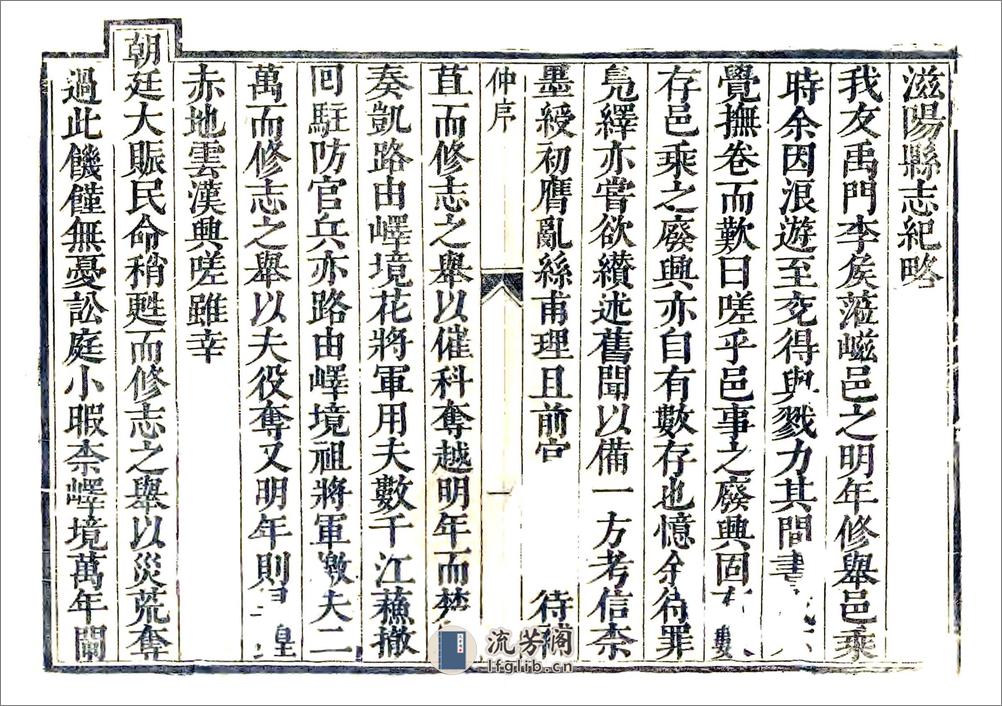 滋陽縣志紀略
我友禹門李矦蒞嵫邑之明年修舉邑乘
時余因浪遊至兗得與戮力其間書
覺撫卷而歎曰嗟乎邑事之廢興固有 數
存邑乘之廢興亦自有數存也憶余待罪
鳧繹亦嘗欲纉述舊聞以備一方考信柰
墨綬初膺亂絲甫理且前官 待
仲序
一
苴而修志之舉以催科奪越明年而楚
奏凱路由嶧境花將軍用夫數千江蘓撤
囘駐防官兵亦路由嶧境祖將軍檄夫二
萬而修志之舉以夫役奪又明年則 皇
赤地雲漢興嗟雖幸
朝廷大賑民命稍甦而修志之舉以災荒奪
過此饑饉無憂訟庭小暇柰嶧境萬年閘
流芳阁
lfglib.cn